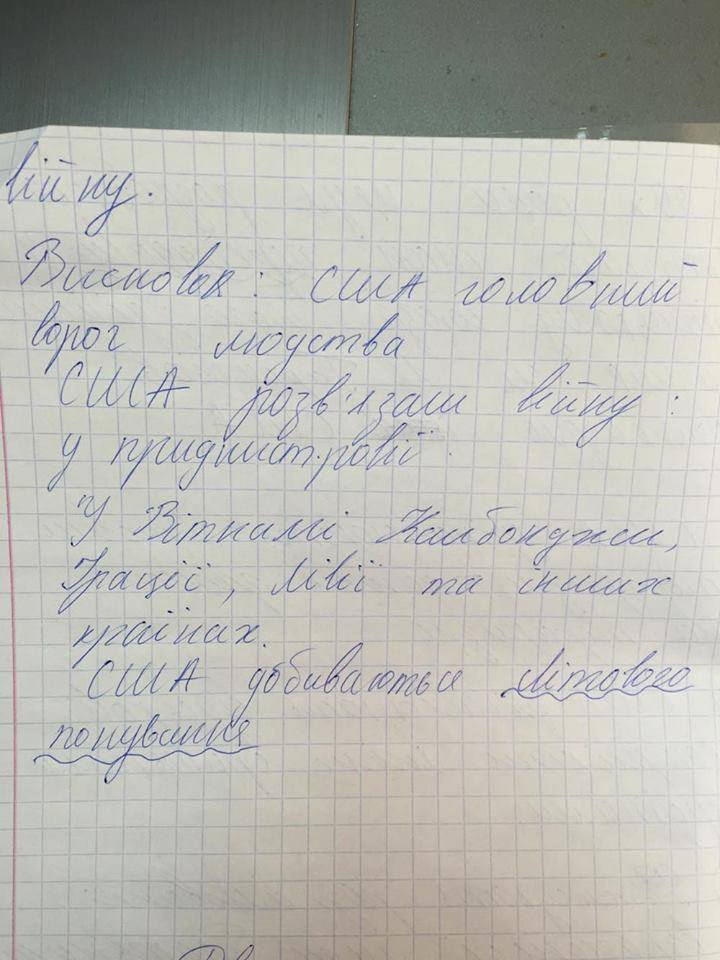 війну.
Висновок: США головний
ворог людства
США розв'язали війну:
у придністровії.
У Вітнамі Камбонджи,
Ірації, Лівії та інших
країнах.
США добиваються світового
понування